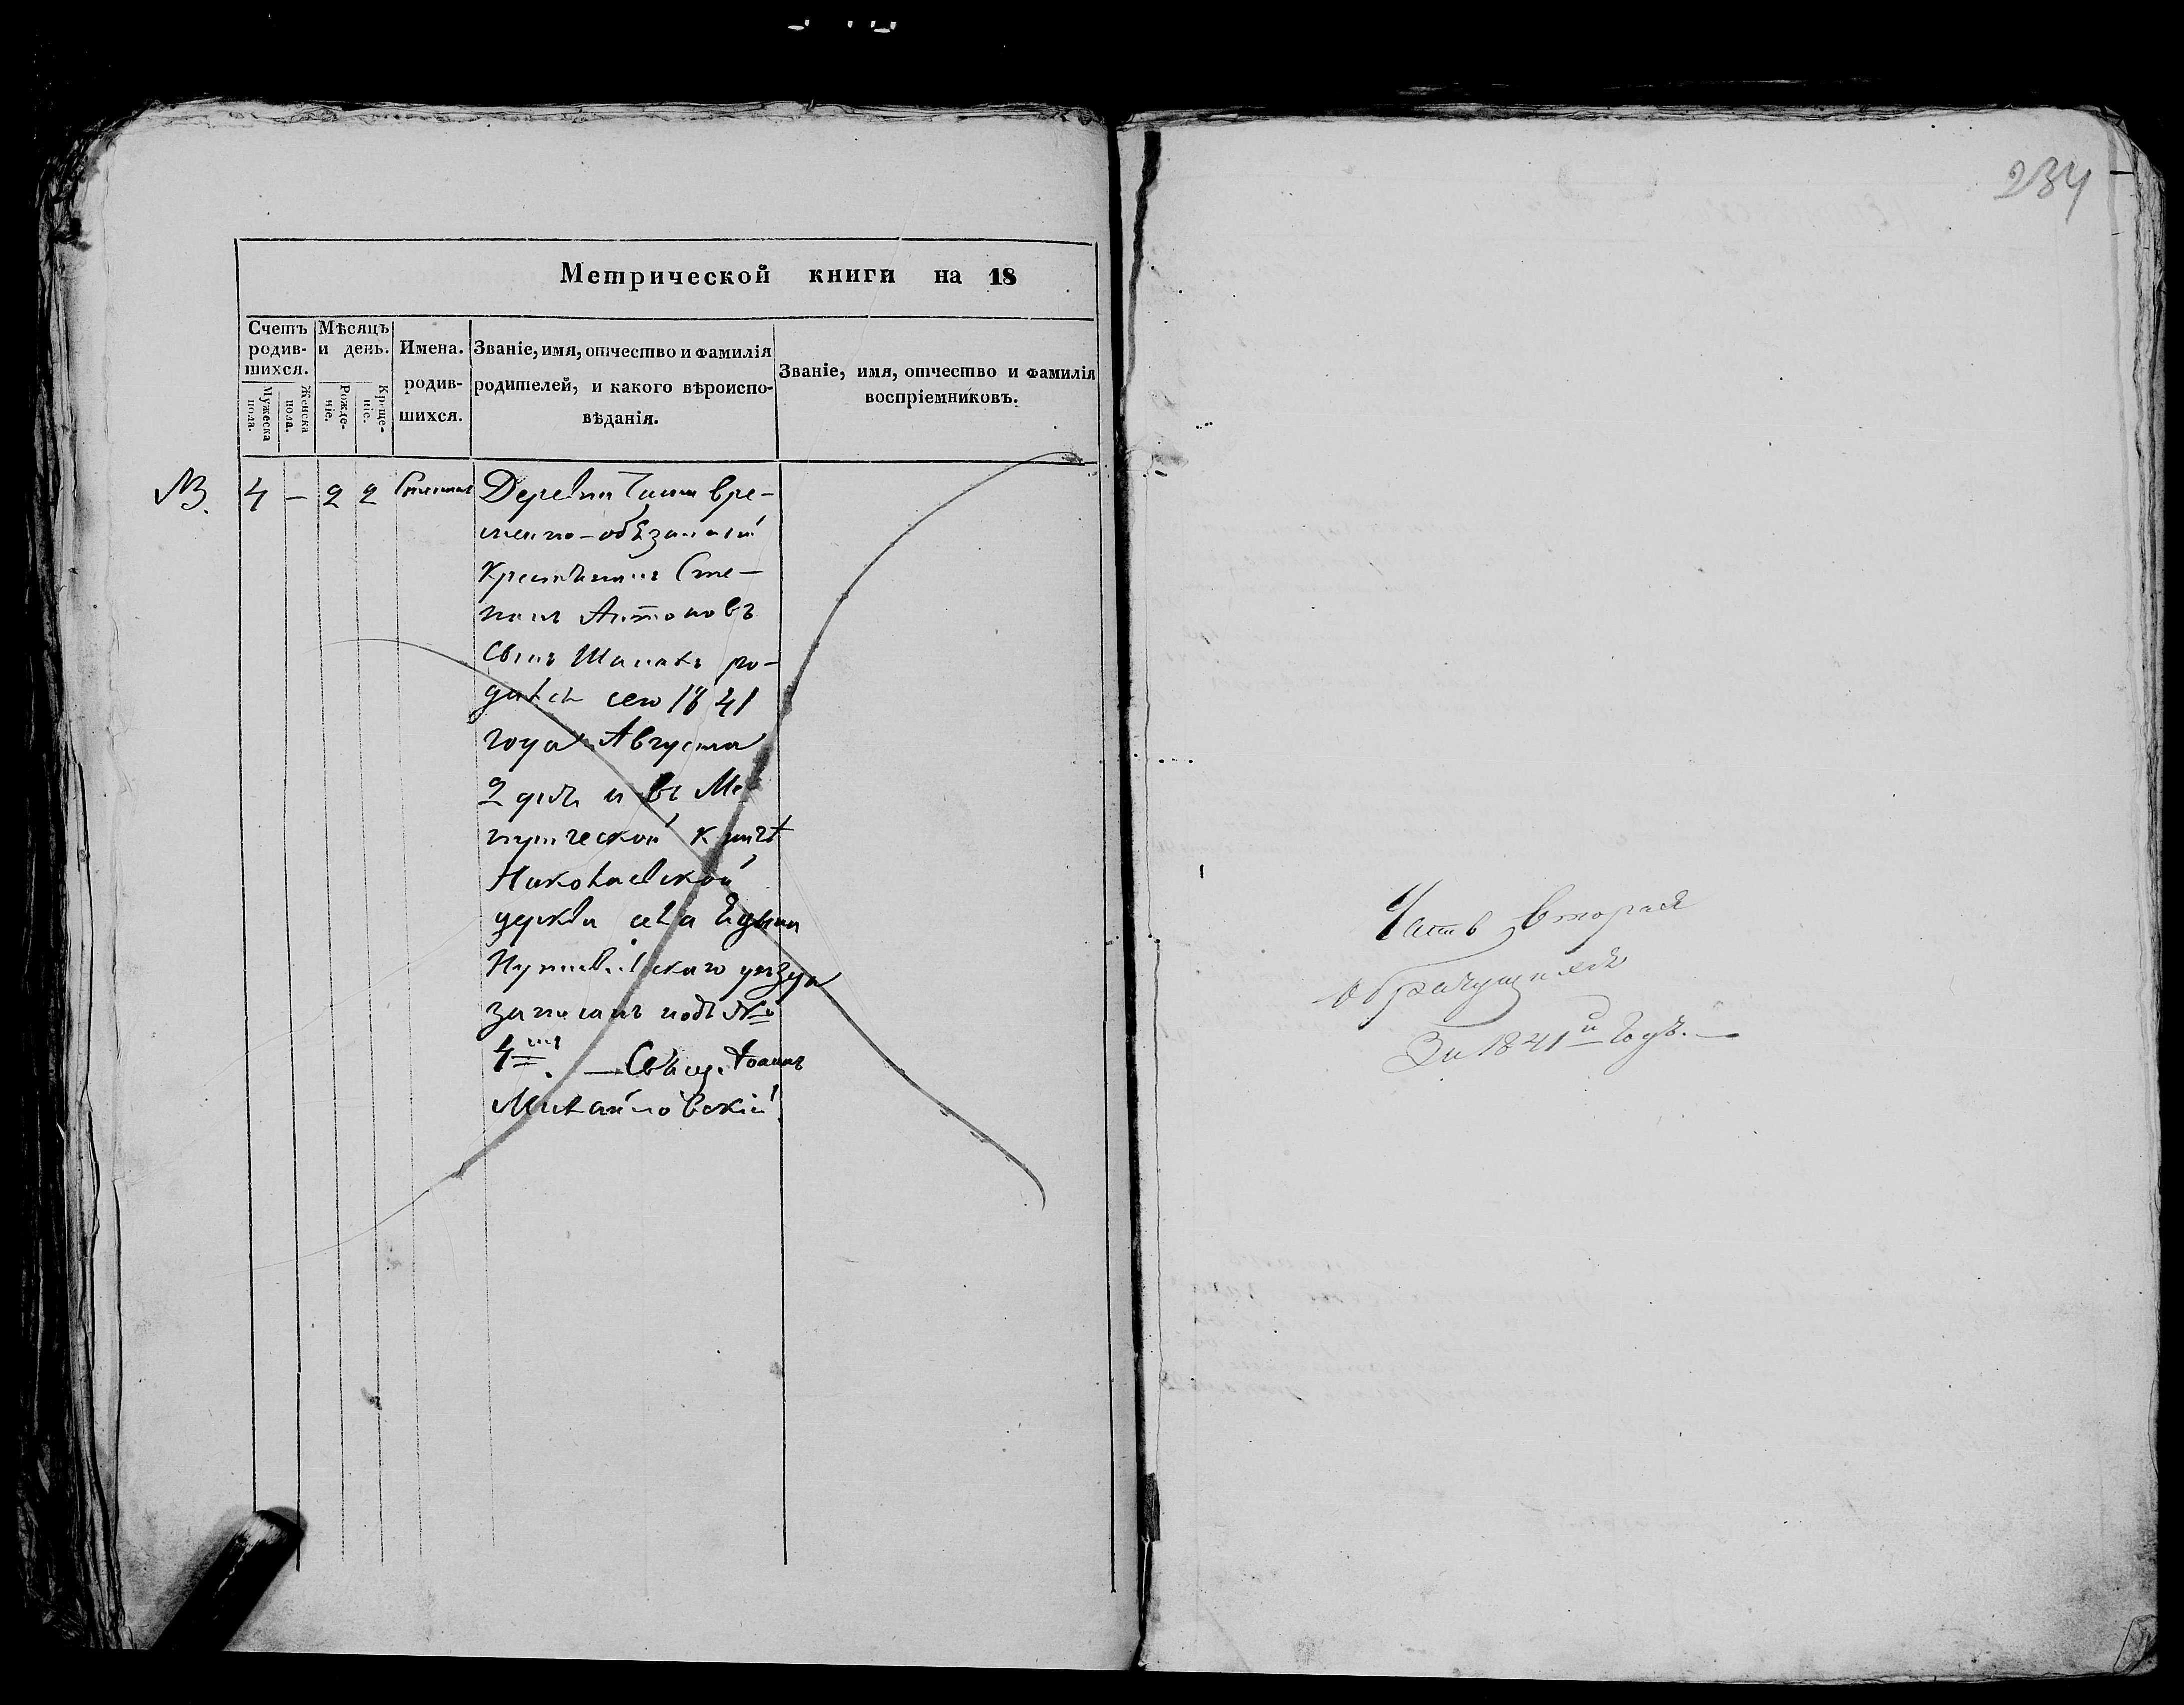 234
Метрической книги на 18
Счетъ родив- шихся.
Мужеска пола.
Женска пола.
Мѣсяцъ и день.
Рожде- ніе.
Креще- ніе.
Имена. родив- шихся.
Званіе, имя, отчество и фамилія родителей, и какого вѣроиспо- вѣданія.
Званіе, имя, отчество и фамилія воспріемниковъ.
NB. 4 — 2 2 Степанъ Деревни вре-
менно-обязаный
Крестьянинъ Сте-
панъ Антоновъ
сынъ ро-
дился сего 1841
года Августа
2 дня и въ Ме
трической книгѣ
Николаевской
церкви села
Путивльскаго уезда
записанъ подъ №
4мъ. — Свящ. Іоаннъ
Михайловскій.
Часть вторая
о бракущихся
За 1841й Годъ. —